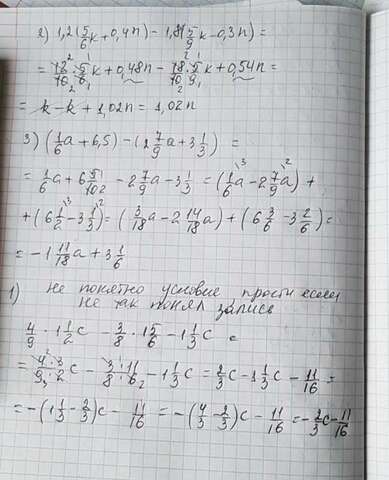 2) 1,2(5/6 k + 0,4n) - 1,8(5/9 k - 0,3n) =
= 12/10 · 5/6 k + 0,48n - 18/10 · 5/9 k + 0,54n =
= k - k + 1,02n = 1,02n
3) (1/6 a + 6,5) - (2 7/9 a + 3 1/3) =
= 1/6 a + 6 5/10 - 2 7/9 a - 3 1/3 = (1/6 a - 2 7/9 a) +
+ (6 1/2 - 3 1/3) = (3/18 a - 2 14/18 a) + (6 3/6 - 3 2/6) =
= -1 11/18 a + 3 1/6
1) не понятно условие прости если
не так понял запись
4/9 · 1 1/2 c - 3/8 · 1 5/6 - 1 1/3 c =
= 4/9 · 3/2 c - 3/8 · 11/6 - 1 1/3 c = 2/3 c - 1 1/3 c - 11/16 =
= -(1 1/3 - 2/3)c - 11/16 = -(4/3 - 2/3)c - 11/16 = -2/3 c - 11/16